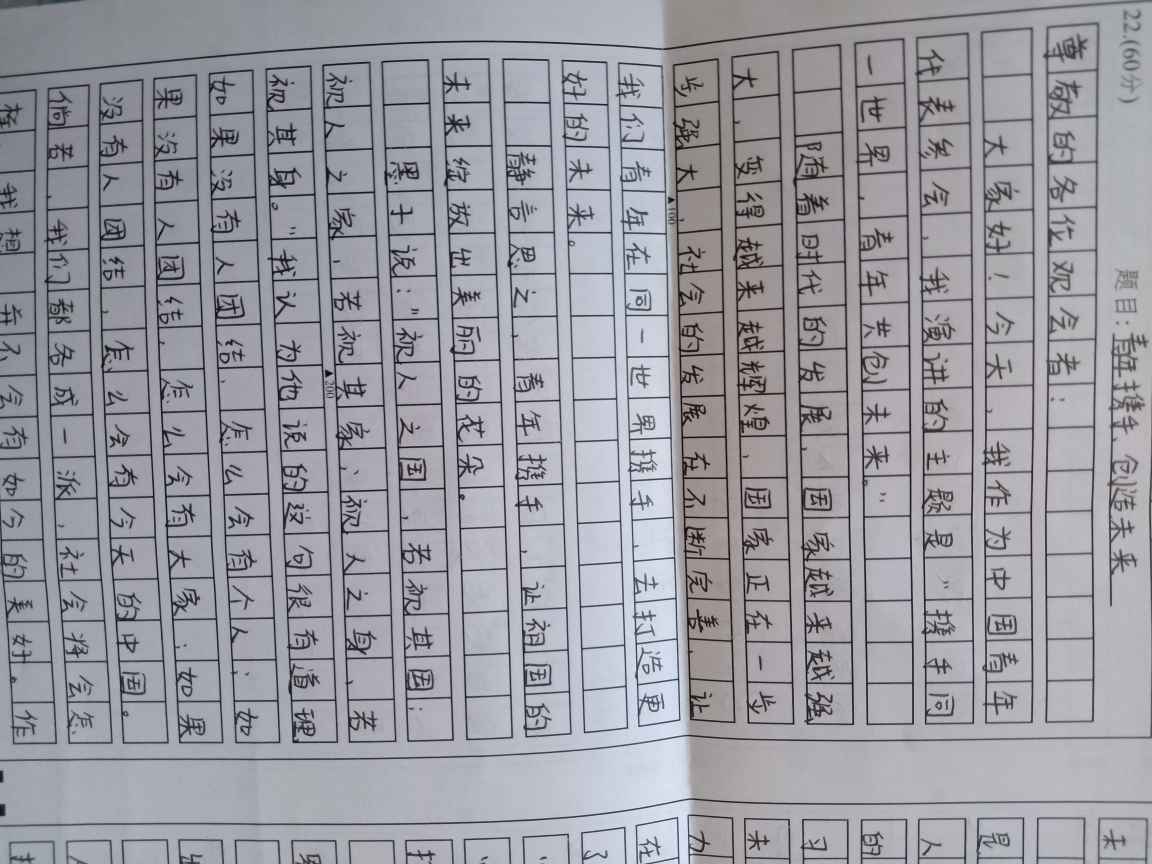 22.(60分)
题目:青年携手、创造未来
尊敬的各位观会者:
大家好!今天,我作为中国青年
代表参会,我演讲的主题是"携手同
一世界,青年共创未来。"
随着时代的发展,国家越来越强
大,变得越来越辉煌,国家正在一步
步强大,社会的发展在不断完善,让
▲100
我们青年在同一世界携手,去打造更
好的未来。
静言思之,青年携手,让祖国的
未来绽放出美丽的花朵。
墨子说:"视人之国,若视其国;
视人之家,若视其家,视人之身,若
▲200
视其身。"我认为他说的这句很有道理
如果没有人团结,怎么会有个人;如
果没有人团结,怎么会有大家;如果
没有人团结,怎么会有今天的中国。
倘若,我们都各成一派,社会将会怎
样,我想,并不会有如今的美好。作
是
人
的
习
未
力
在
了